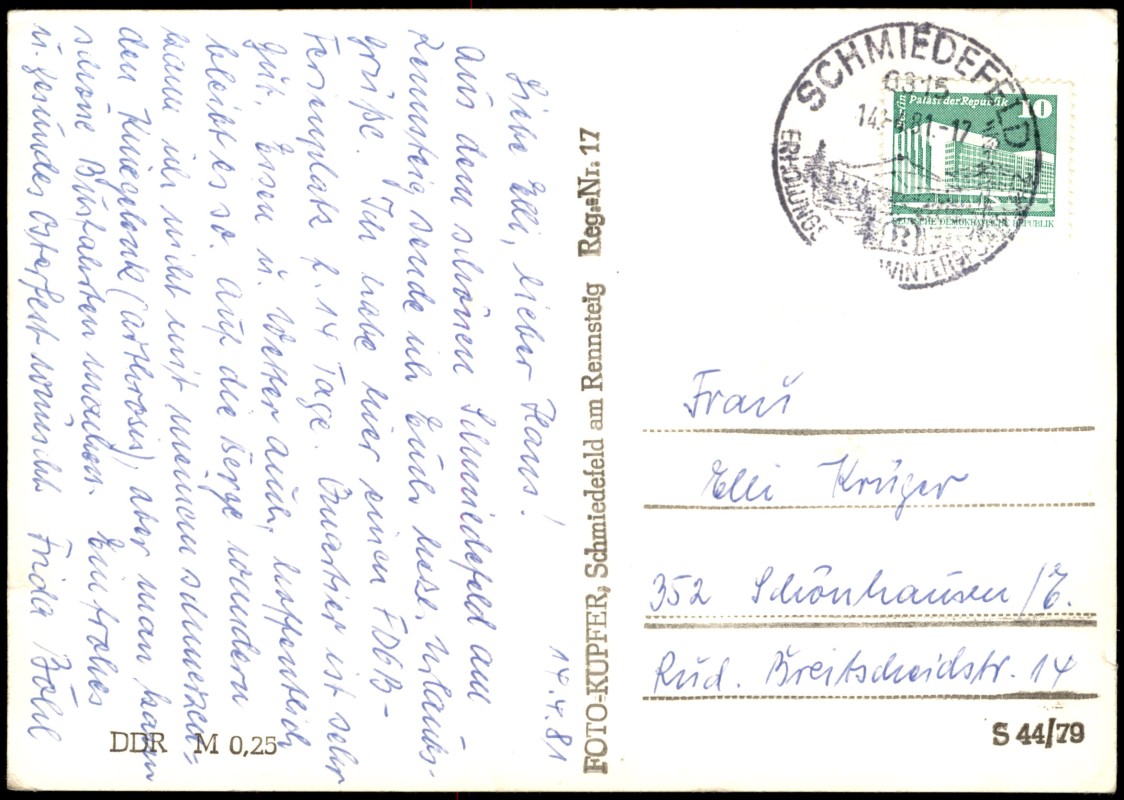 14.4.81
Liebe Elli, lieber Hans!
Aus dem schönen Schmiedefeld am
Rennsteig sende ich Euch liebe, Urlaubs-
grüße. Ich habe hier einen FDGB-
Ferienplatz f. 14 Tage. Quartier ist sehr
gut. Essen u. Wetter auch, hoffentlich
bleibt es so. Auf die Berge wandern
kann ich nicht mit meinem schmerzen-
den Kniegelenk (Arthrosis), aber man kann
schöne Busfahrten machen. Ein frohes
u. gesundes Osterfest wünscht Frida
DDR M 0,25
FOTO-KUPFER, Schmiedefeld am Rennsteig Reg.-Nr. 17
SCHMIEDEFELD
14.-4.81.-17
ERHOLUNGS
WINTERSPO
Berlin Palast der Republik
10
DEUTSCHE DEMOKRATISCHE REPUBLIK
Frau
Elli Krüger
352 Schönhausen/E.
Rud. Breitscheidstr. 14
S 44/79